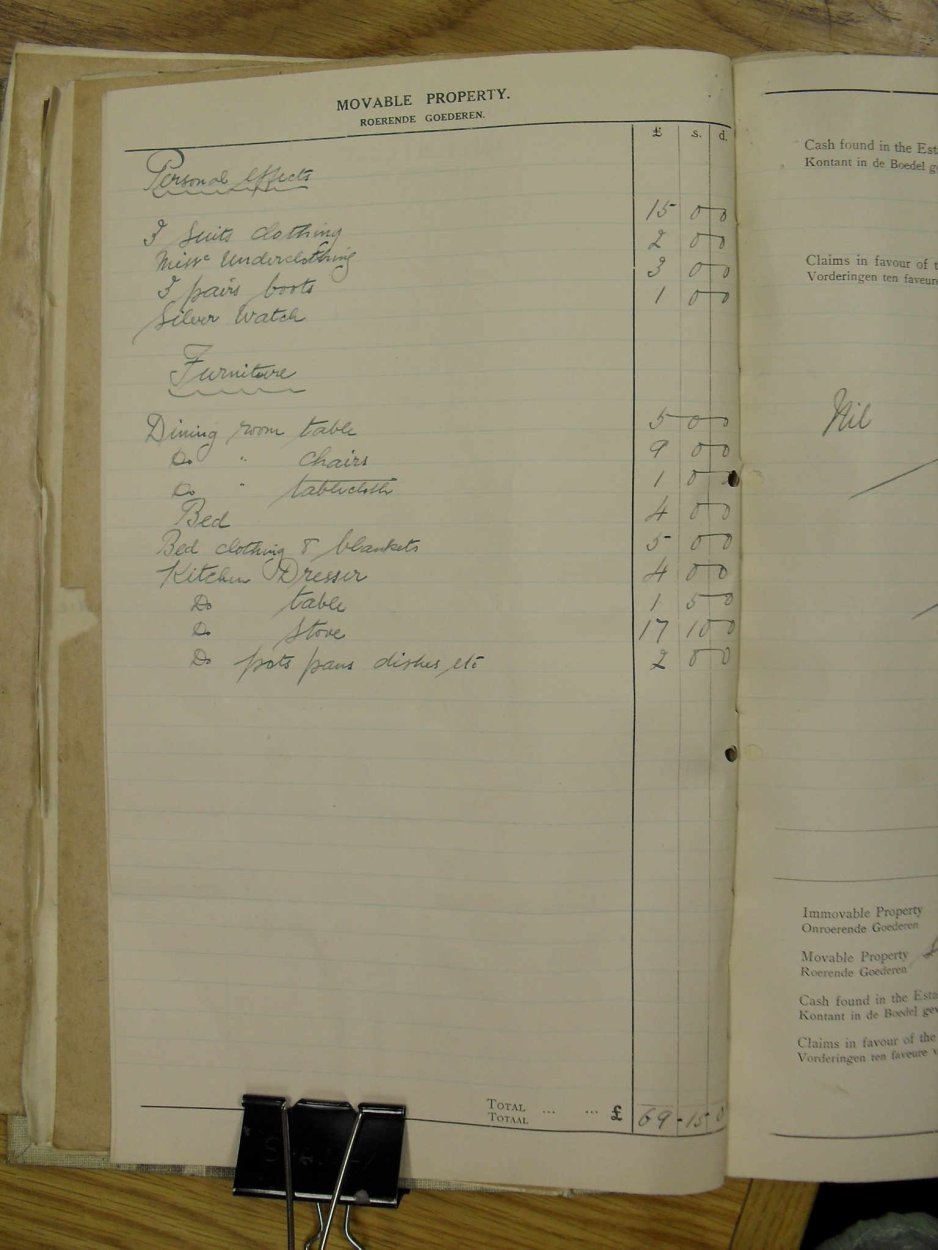 MOVABLE PROPERTY.
ROERENDE GOEDEREN.
£ s. d.
Personal effects
3 Suits clothing 15 0 0
Missc Underclothing 2 0 0
3 pairs boots 3 0 0
Silver Watch 1 0 0
Furniture
Dining room table 5 0 0
Do " chairs 9 0 0
Do " tablecloth 1 0 0
Bed 4 0 0
Bed clothing & blankets 5 0 0
Kitchen Dresser 4 0 0
Do table 1 5 0
Do Stove 17 10 0
Do pots pans dishes etc 2 0 0
TOTAL ... ... £ 69-15 0
TOTAAL
Cash found in the Est
Kontant in de Boedel g
Claims in favour of t
Vorderingen ten faveure
Nil
Immovable Property
Onroerende Goederen
Movable Property
Roerende Goederen
Cash found in the Esta
Kontant in de Boedel gev
Claims in favour of the
Vorderingen ten faveure v